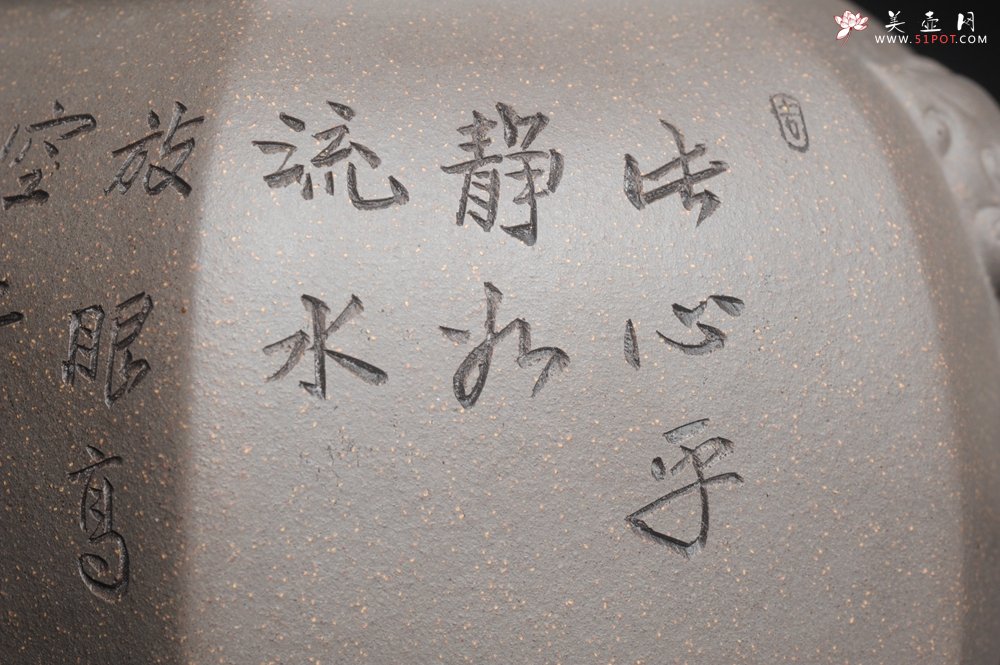 此心平
静如
流水
放眼高
空
美壶网
WWW.51POT.COM